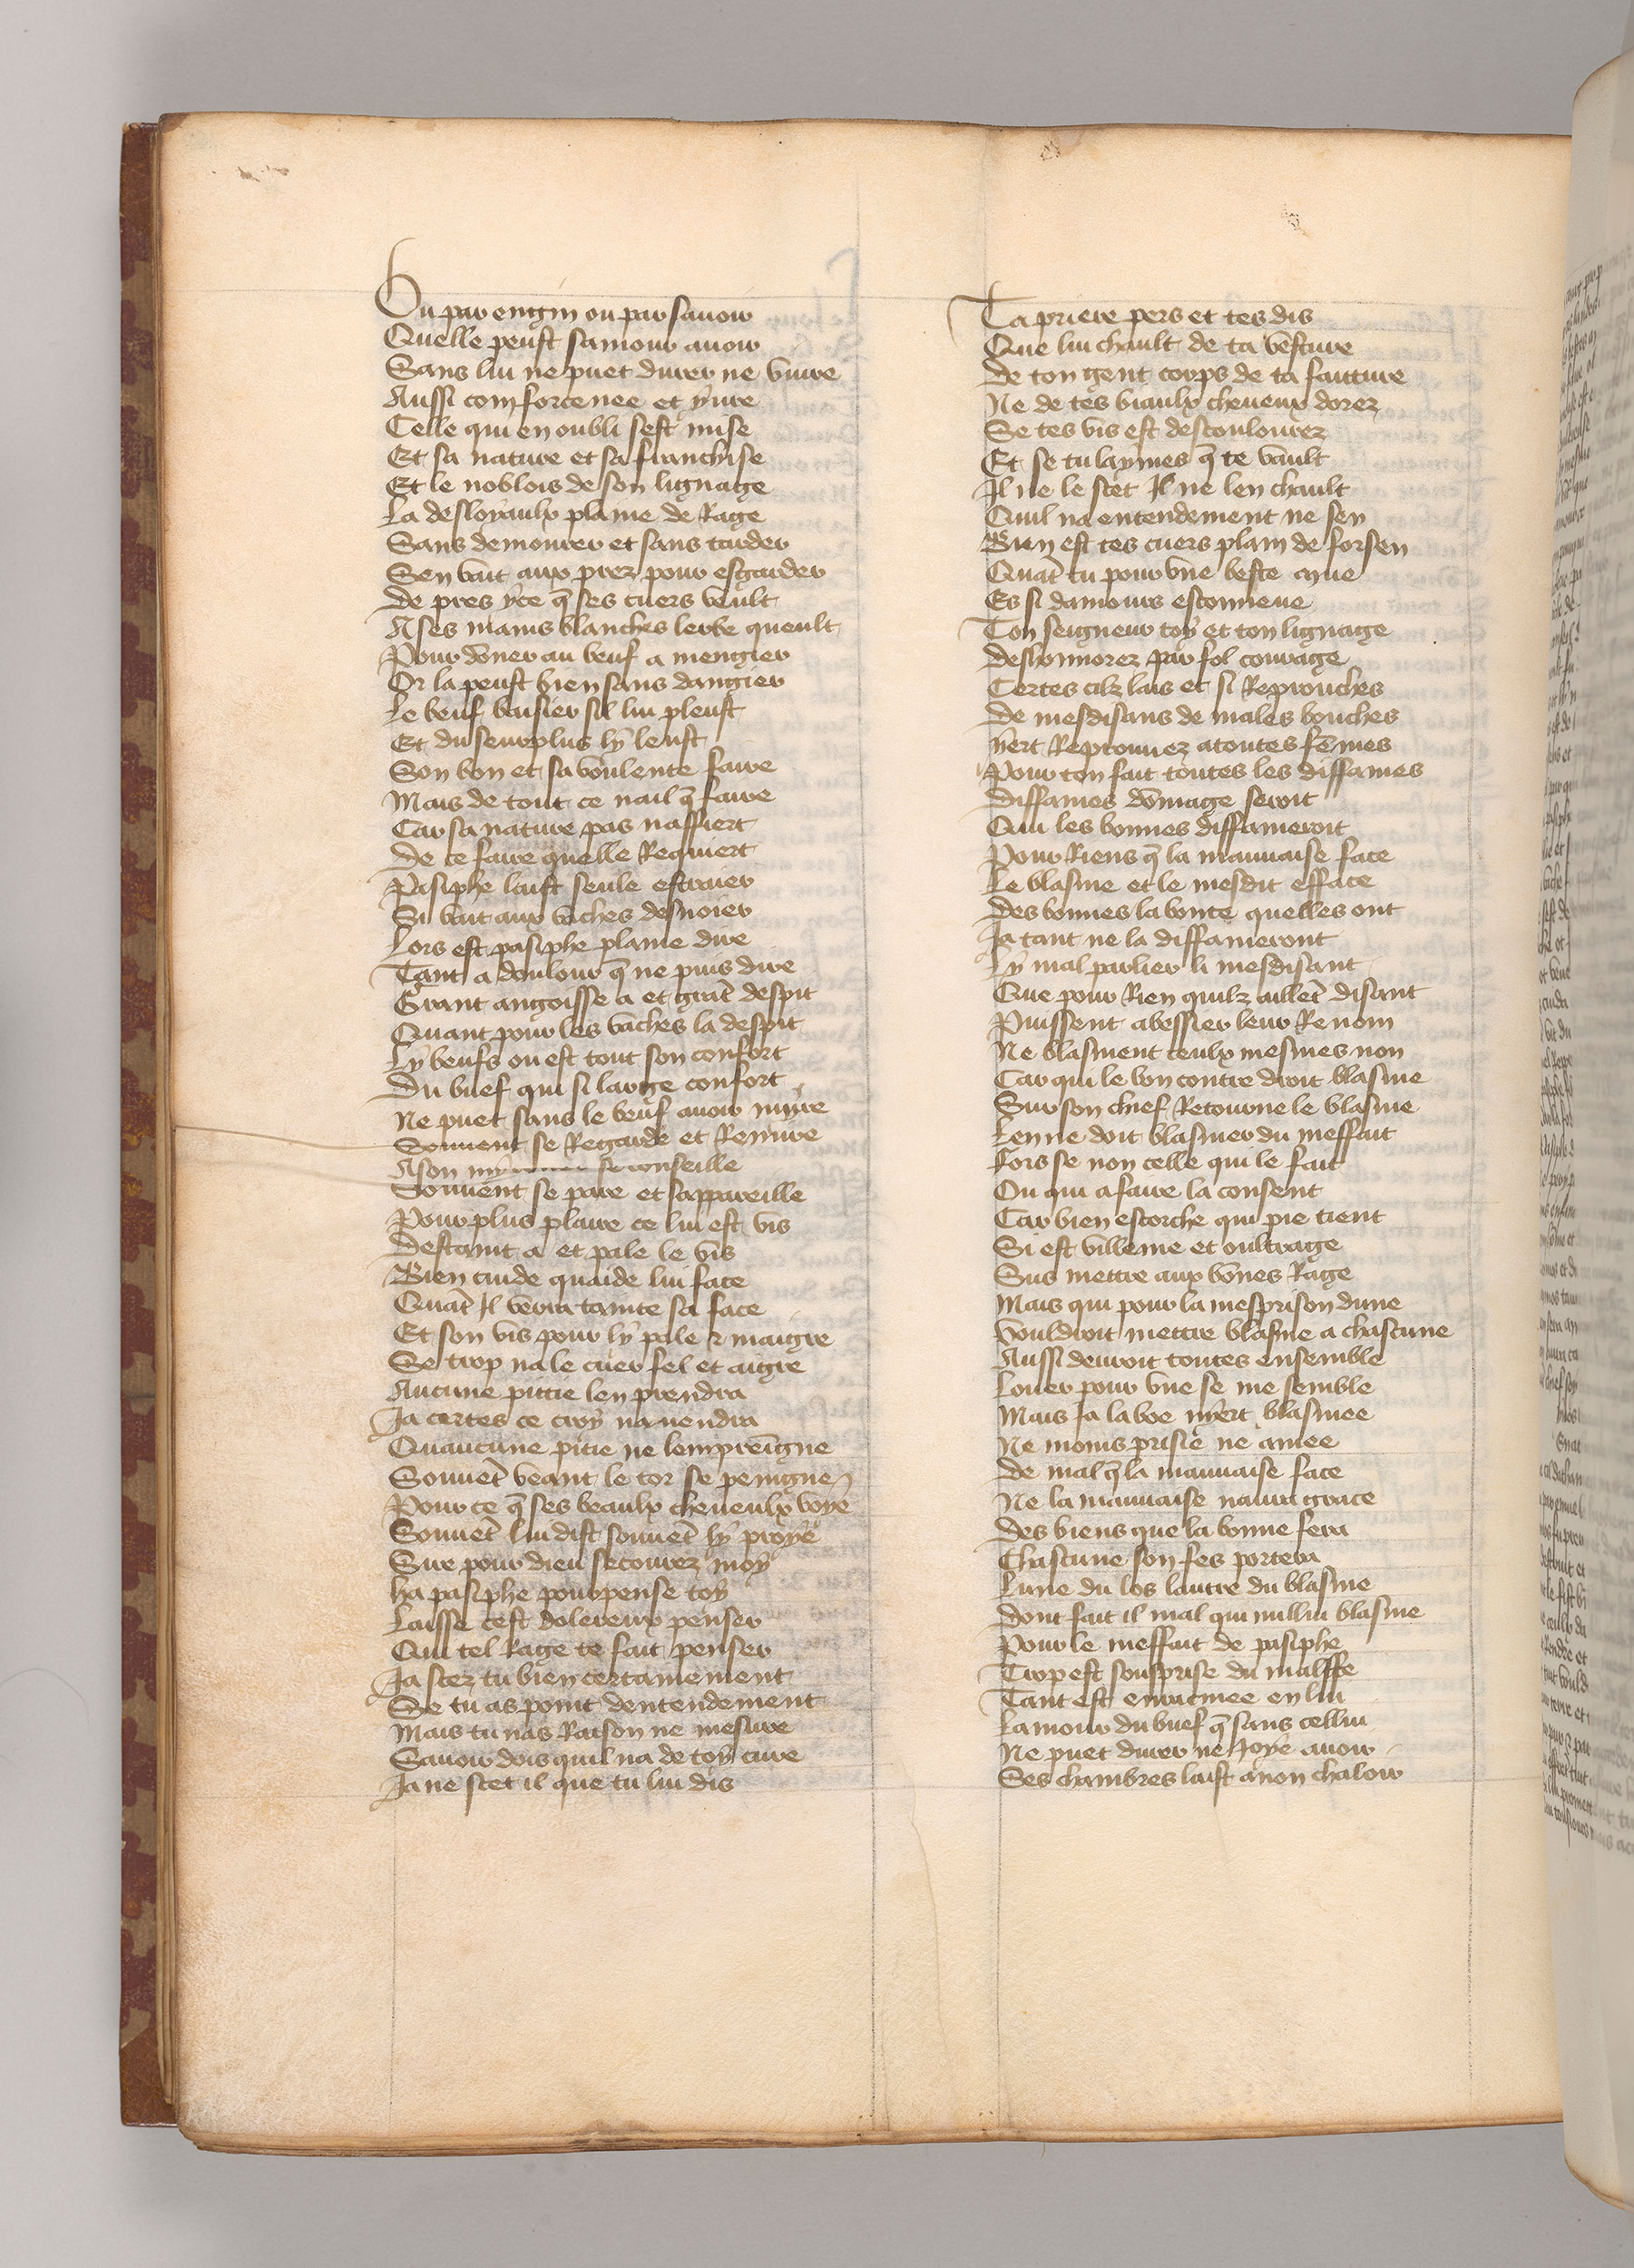 Ou par engin ou par sauoir
Quelle peust samour auoir
Sans lui ne puet durer ne viure
Aussi com forcenee et yure
Celle qui en oubli sest mise
Et sa nature et sa franchise
Et le noblois de son lignage
La desloyaulx plaine de Rage
Sans demourer et sans tarder
Sen vait aux prez pour esgarder
De pres yce q̄ ses cuers veult
A ses mains blanches lerbe queult
Pour doner au beuf a mengier
Or la peust bien sans dangier
Le beuf baisier sil lui pleust
Et du seurplus ly leust
Son bon et sa voulente faire
Mais de tout ce nail q̄ faire
Car sa nature pas naffiert
De ce faire quelle Requiert
Pasiphe laist seule estraier
Si vait aux vaches desnoier
Lors est pasiphe plaine dire
Tant a doulour q̄ ne puis dire
Grant angoisse a et grāt despit
Quant pour les vaches la despit
Ly beufs ou est tout son confort
Du buef qui si large confort
Ne puet sans le beuf auoir mire
Souuent se Regarde et Remire
A son my se conseille
Souuent se pare et sappareille
Pour plus plaire ce lui est vis
Destaint a et pale le vis
Bien cuide quaide lui face
Quāt Il verra tainte sa face
Et son vis pour ly pale & maigre
Se trop na le cuer fel et aigre
Aucune pitie len prendra
Ja certes ce croy nauendra
Quaucune pitie ne lempreīgne
Souuēt veant le tor se peingne
Pour ce q̄ ses beaulx cheueulx voye
Souuēt lui dist souuēt ly proye
Sire pour dieu secourez moy
ha pasiphe pourpense toy
Laisse cest dolereux penser
Qui tel Rage te fait penser
Ja scez tu bien certainement
Se tu as point dentendement
Mais tu nas Raison ne mesure
Sauoir dois quil na de toy cure
Ja ne scet il que tu lui dis
Ta priere pers et tes dis
Que lui chault de ta vesture
De ton gent corps de ta faitture
Ne de tes biaulx cheueux dorez
Se tes vis est descoulourez
Et se tu laymes q̄ te vault
Il ne le scet Il ne len chault
Quil na entendement ne sen
Bien est tes cuers plain de forsen
Quāt tu pour vne beste mue
Es si damours esconmeue
Ton seigneur toy et ton lignage
Deshonnorez par fol courage
Certes cilz lais et si Reprouches
De mesdisans de males bouches
yert Reprouuez atoutes fēmes
Pour ton fait toutes les diffames
Diffames dōmage seroit
Qui les bonnes diffameroit
Pour Riens q̄ la mauuaise face
Le blasme et le mesdit efface
Des bonnes la bonte quelles ont
Ja tant ne la diffameront
Ly mal parlier li mesdisant
Que pour Rien quilz aillēt disant
Puissent abessier leur Renom
Ne blasment ceulx mesmes non
Car qui le bon contre droit blasme
Sur son chief Retourne le blasme
Len ne doit blasmer du meffait
Fors se non celle qui le fait
Ou qui a faire la consent
Car bien escorche qui pie tient
Si est villenie et oultrage
Sus mettre aux bōnes Rage
Mais qui pour la mesprison dune
Vouldroit mettre blasme a chascune
Aussi deuroit toutes ensemble
Louer pour vne se me semble
Mais Ja la boe nyert blasmee
Ne moins prisie ne amee
De mal q̄ la mauuaise face
Ne la mauuaise naura grace
Des biens que la bonne fera
Chascune son fes portera
Lune du los lautre du blasme
Dont fait il mal qui nullui blasme
Pour le meffait de pasiphe
Trop est sousprise du malffe
Tant est enracinee en lui
Lamour du buef q̄ sans cellui
Ne puet durer ne Joye auoir
Ses chambres laist anon chaloir